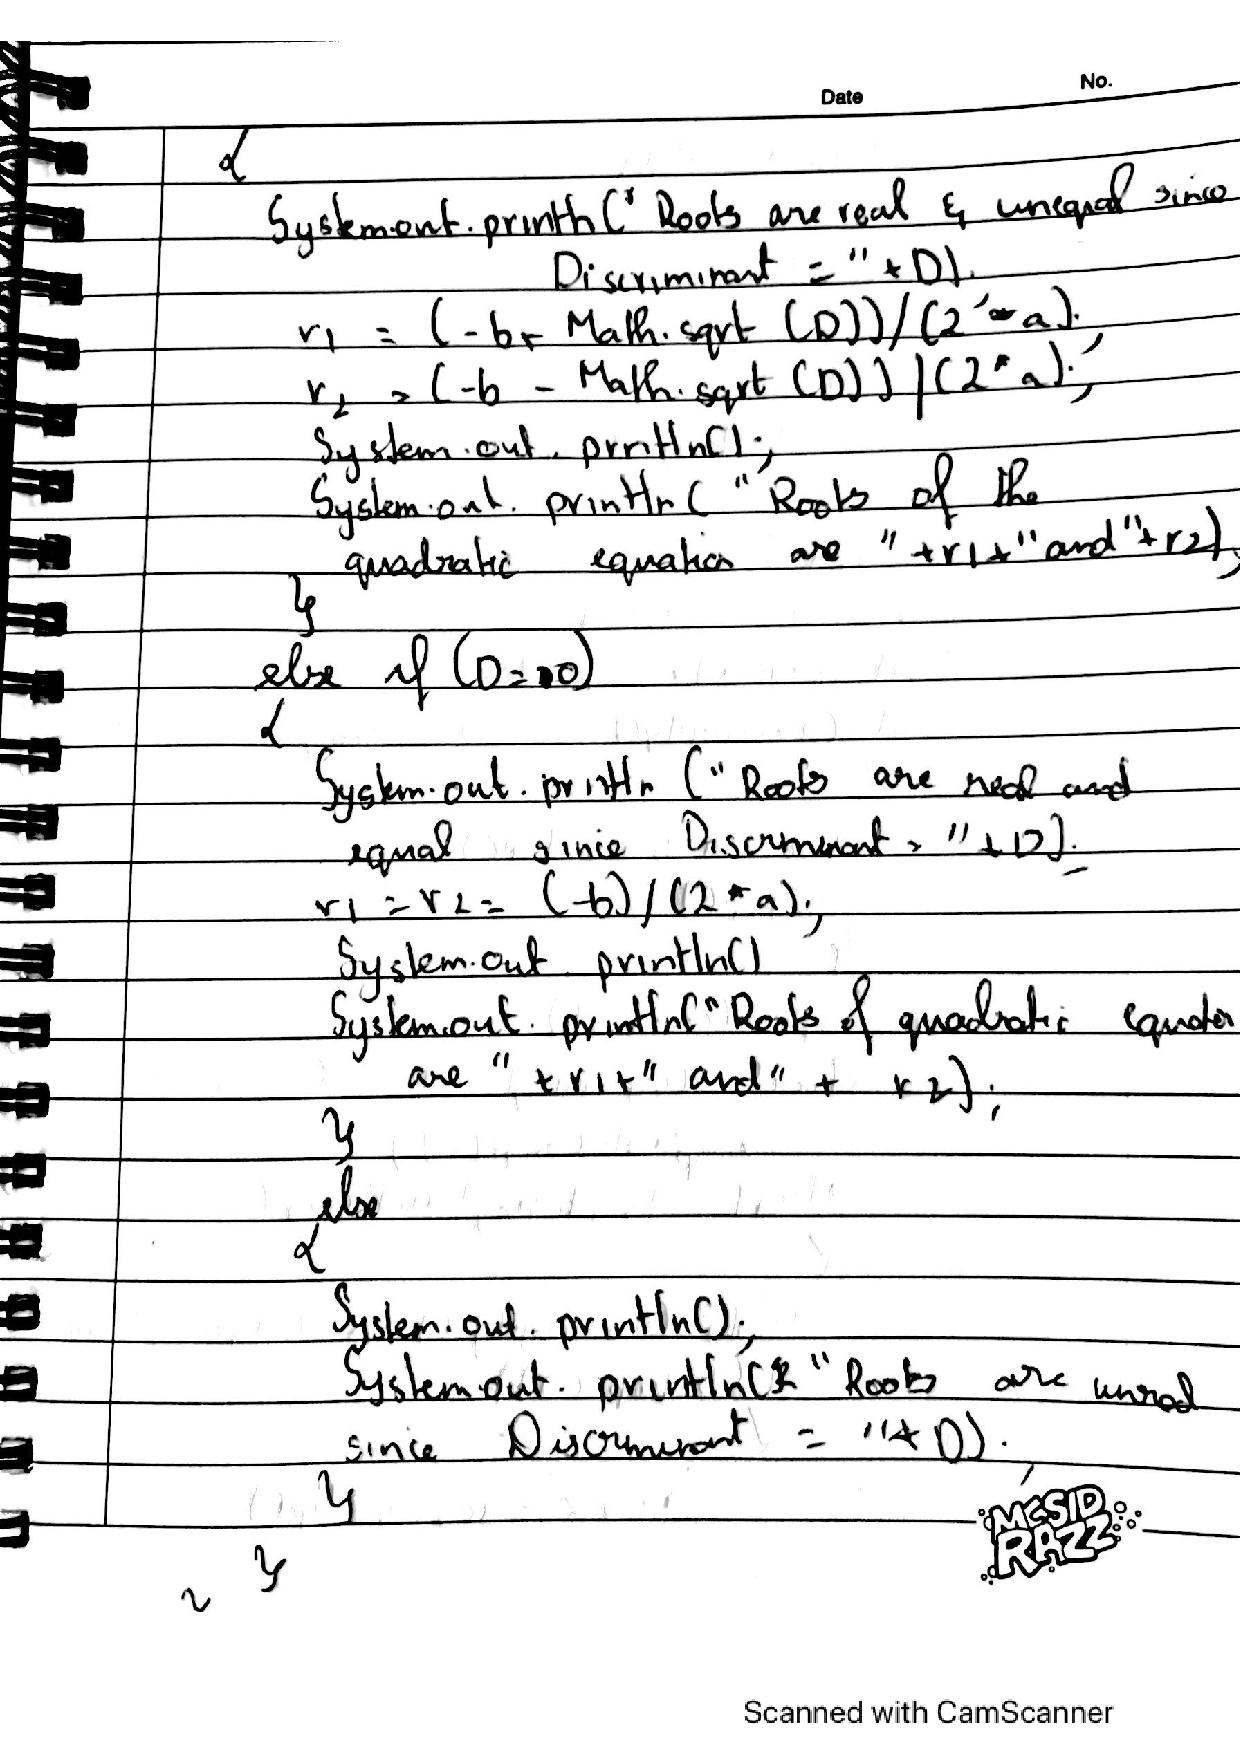 No.
Date
{
System.out.println(" Roots are real & unequal since
Discriminant = " + D).
r1 = (-b+ Math.sqrt (D))/(2 * a);
r2 = (-b - Math.sqrt (D))/(2*a);
System.out.println();
System.out.println( "Roots of the
quadratic equation are " +r1+" and"+r2);
}
else if (D==0)
{
System.out.println ("Roots are real and
equal since Discriminant = "+D);
r1 = r2 = (-b)/(2*a);
System.out println()
System.out.println("Roots of quadratic
are " +r1+" and" + r2);
}
else
{
System.out.println();
System.out.println( "Roots are unreal
since Discriminant = "+D);
}
}
MCSID
RAZZ
Scanned with CamScanner